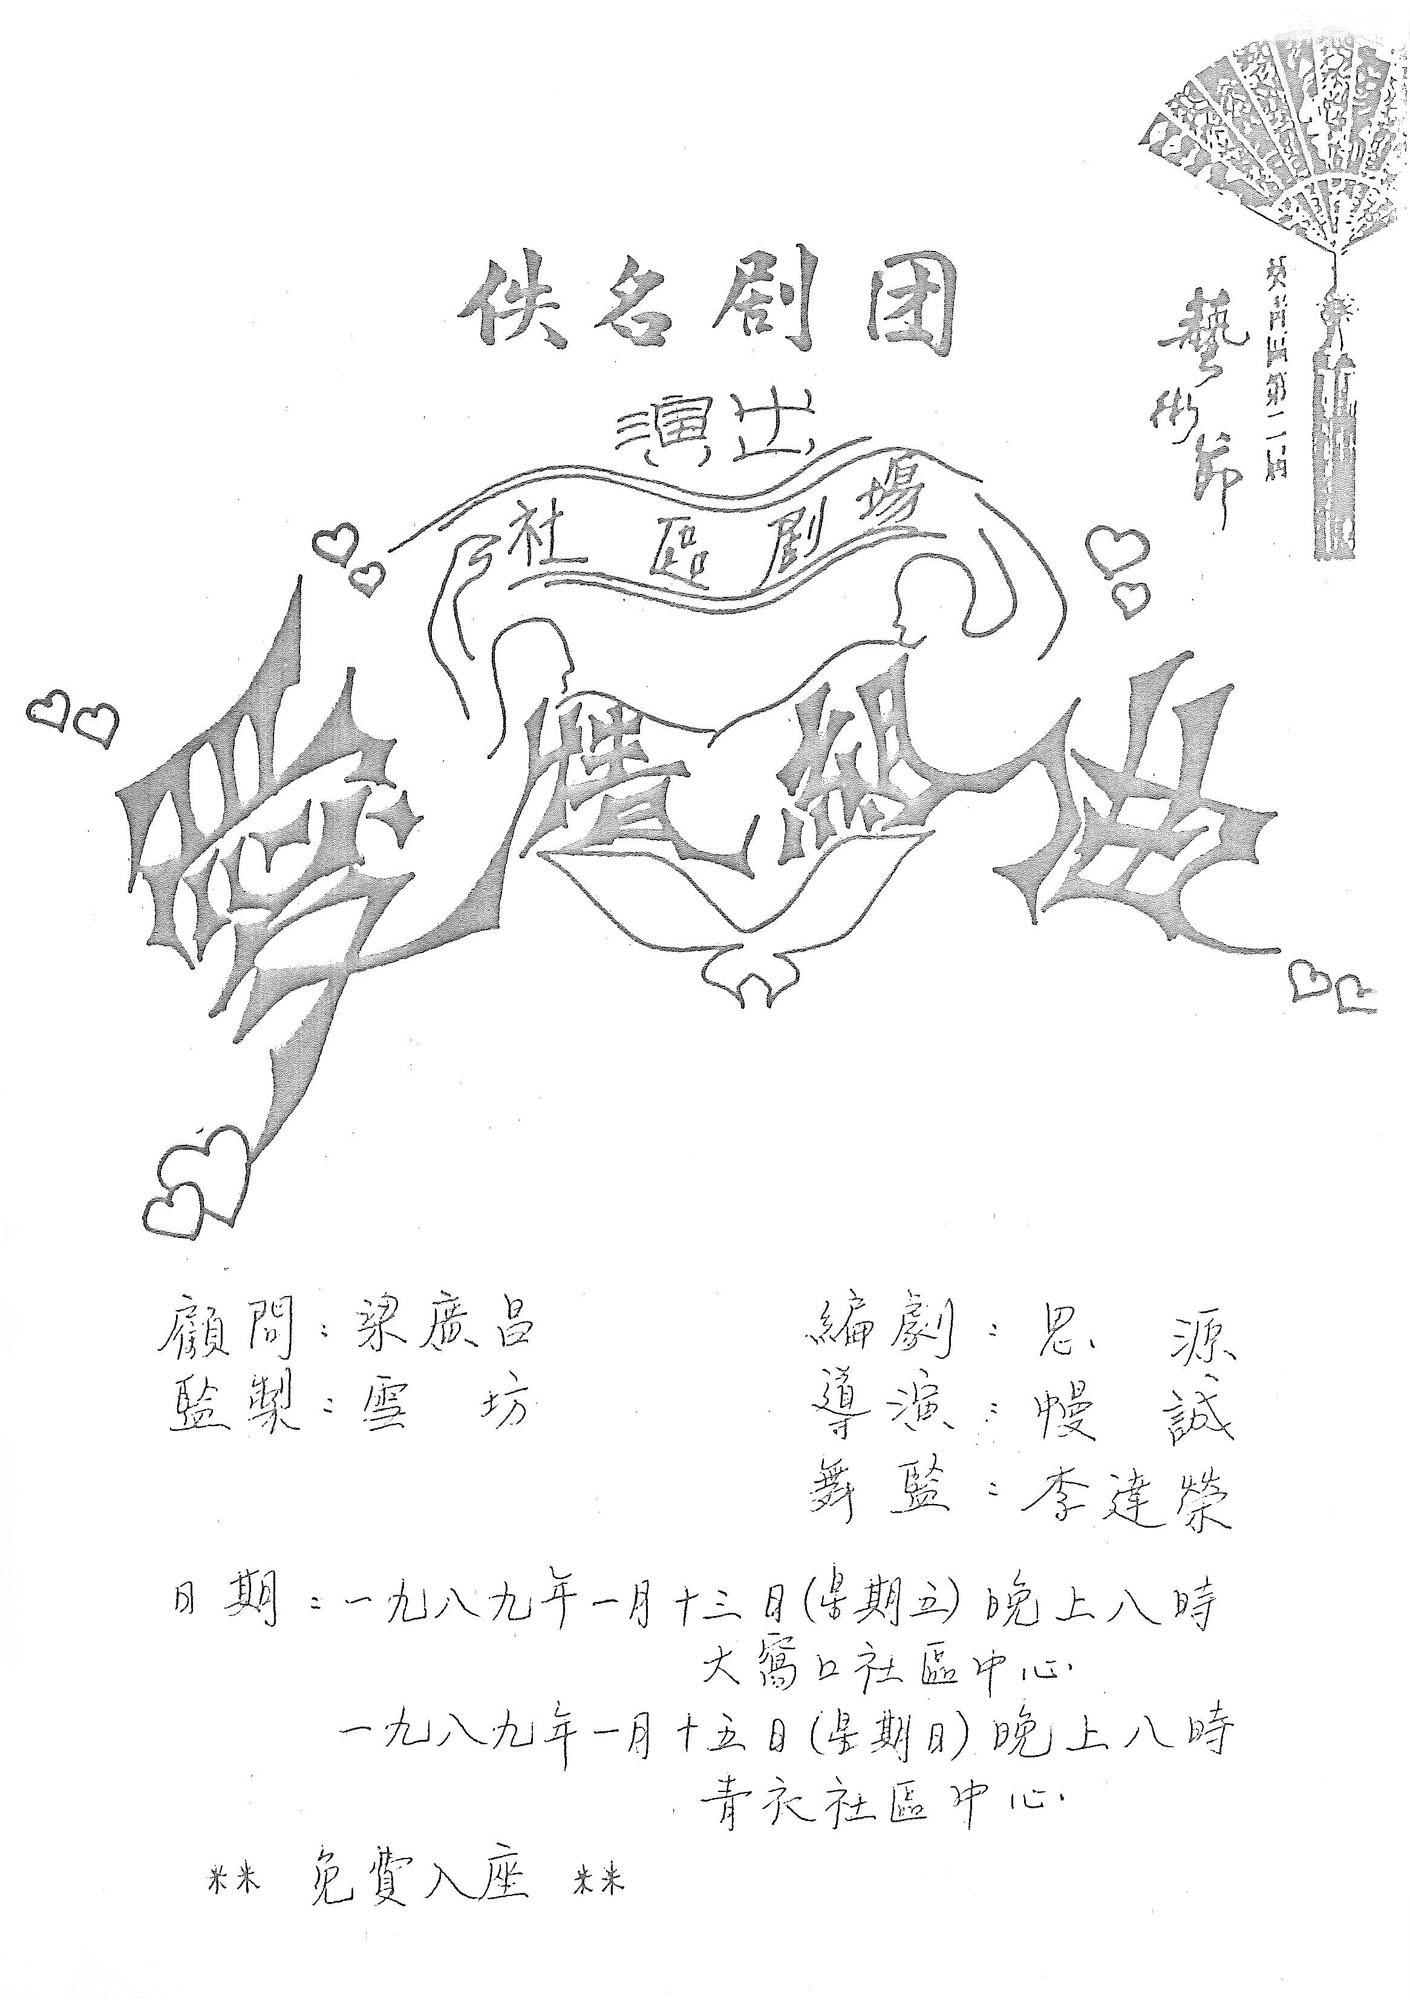 佚名剧团
演出
葵青區第二屆
藝術節
社區剧場
愛
顧問：梁廣昌
監製：雪 坊
編劇：思 源
導演：幔 誠
舞監：李達榮
日期：一九八九年一月十三日(星期五)晚上八時
大窩口社區中心.
一九八九年一月十五日(星期日)晚上八時
青衣社區中心.
** 免費入座 **